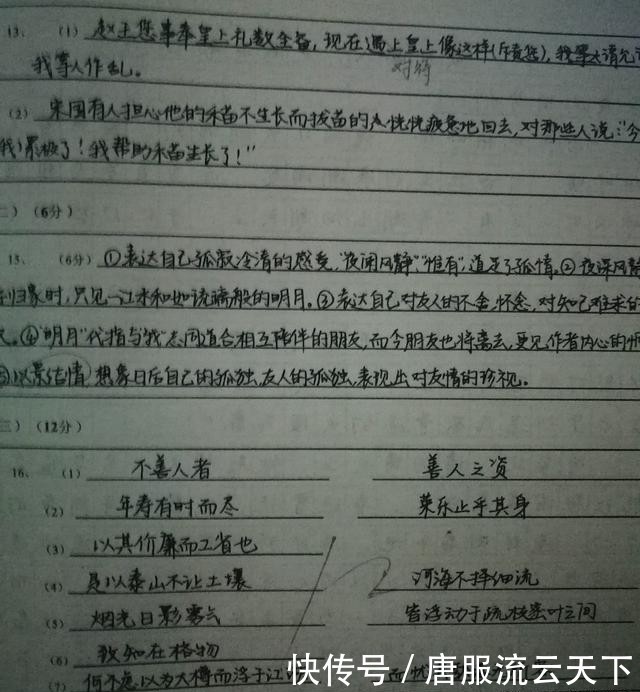 13. (1) 赵王您事奉皇上礼数全备,现在遇上皇上像这样(斥责您),我等请允
对待
我等人作乱。
(2) 宋国有人担心他的禾苗不生长而拔苗的人恍恍疲惫地回去,对那些人说:“今
我)累极了!我帮助禾苗生长了!”
二)(6分)
15. (6分) ①表达自己孤寂冷清的感受,“夜阑风静”,“惟有”,道足了孤情。②夜深风静
归家时,只见一江水和如琉璃般的明月。③表达自己对友人的不舍,怀念,对知己难求的
④“明月”代指与“我”志同道合相互陪伴的朋友,而今朋友也将离去,更见作者内心的
⑤以景结情,想象日后自己的孤独,友人的孤独,表现出对友情的珍视。
三)(12分)
16. (1) 不善人者 善人之资
(2) 年寿有时而尽 荣乐止乎其身
(3) 以其价廉而工省也
(4) 是以泰山不让土壤 河海不择细流
(5) 烟光日影露气 皆浮动于疏枝密叶之间
(6) 致知在格物
(7) 何不虑以为大樽而浮于江 而
快传号/唐服流云天下